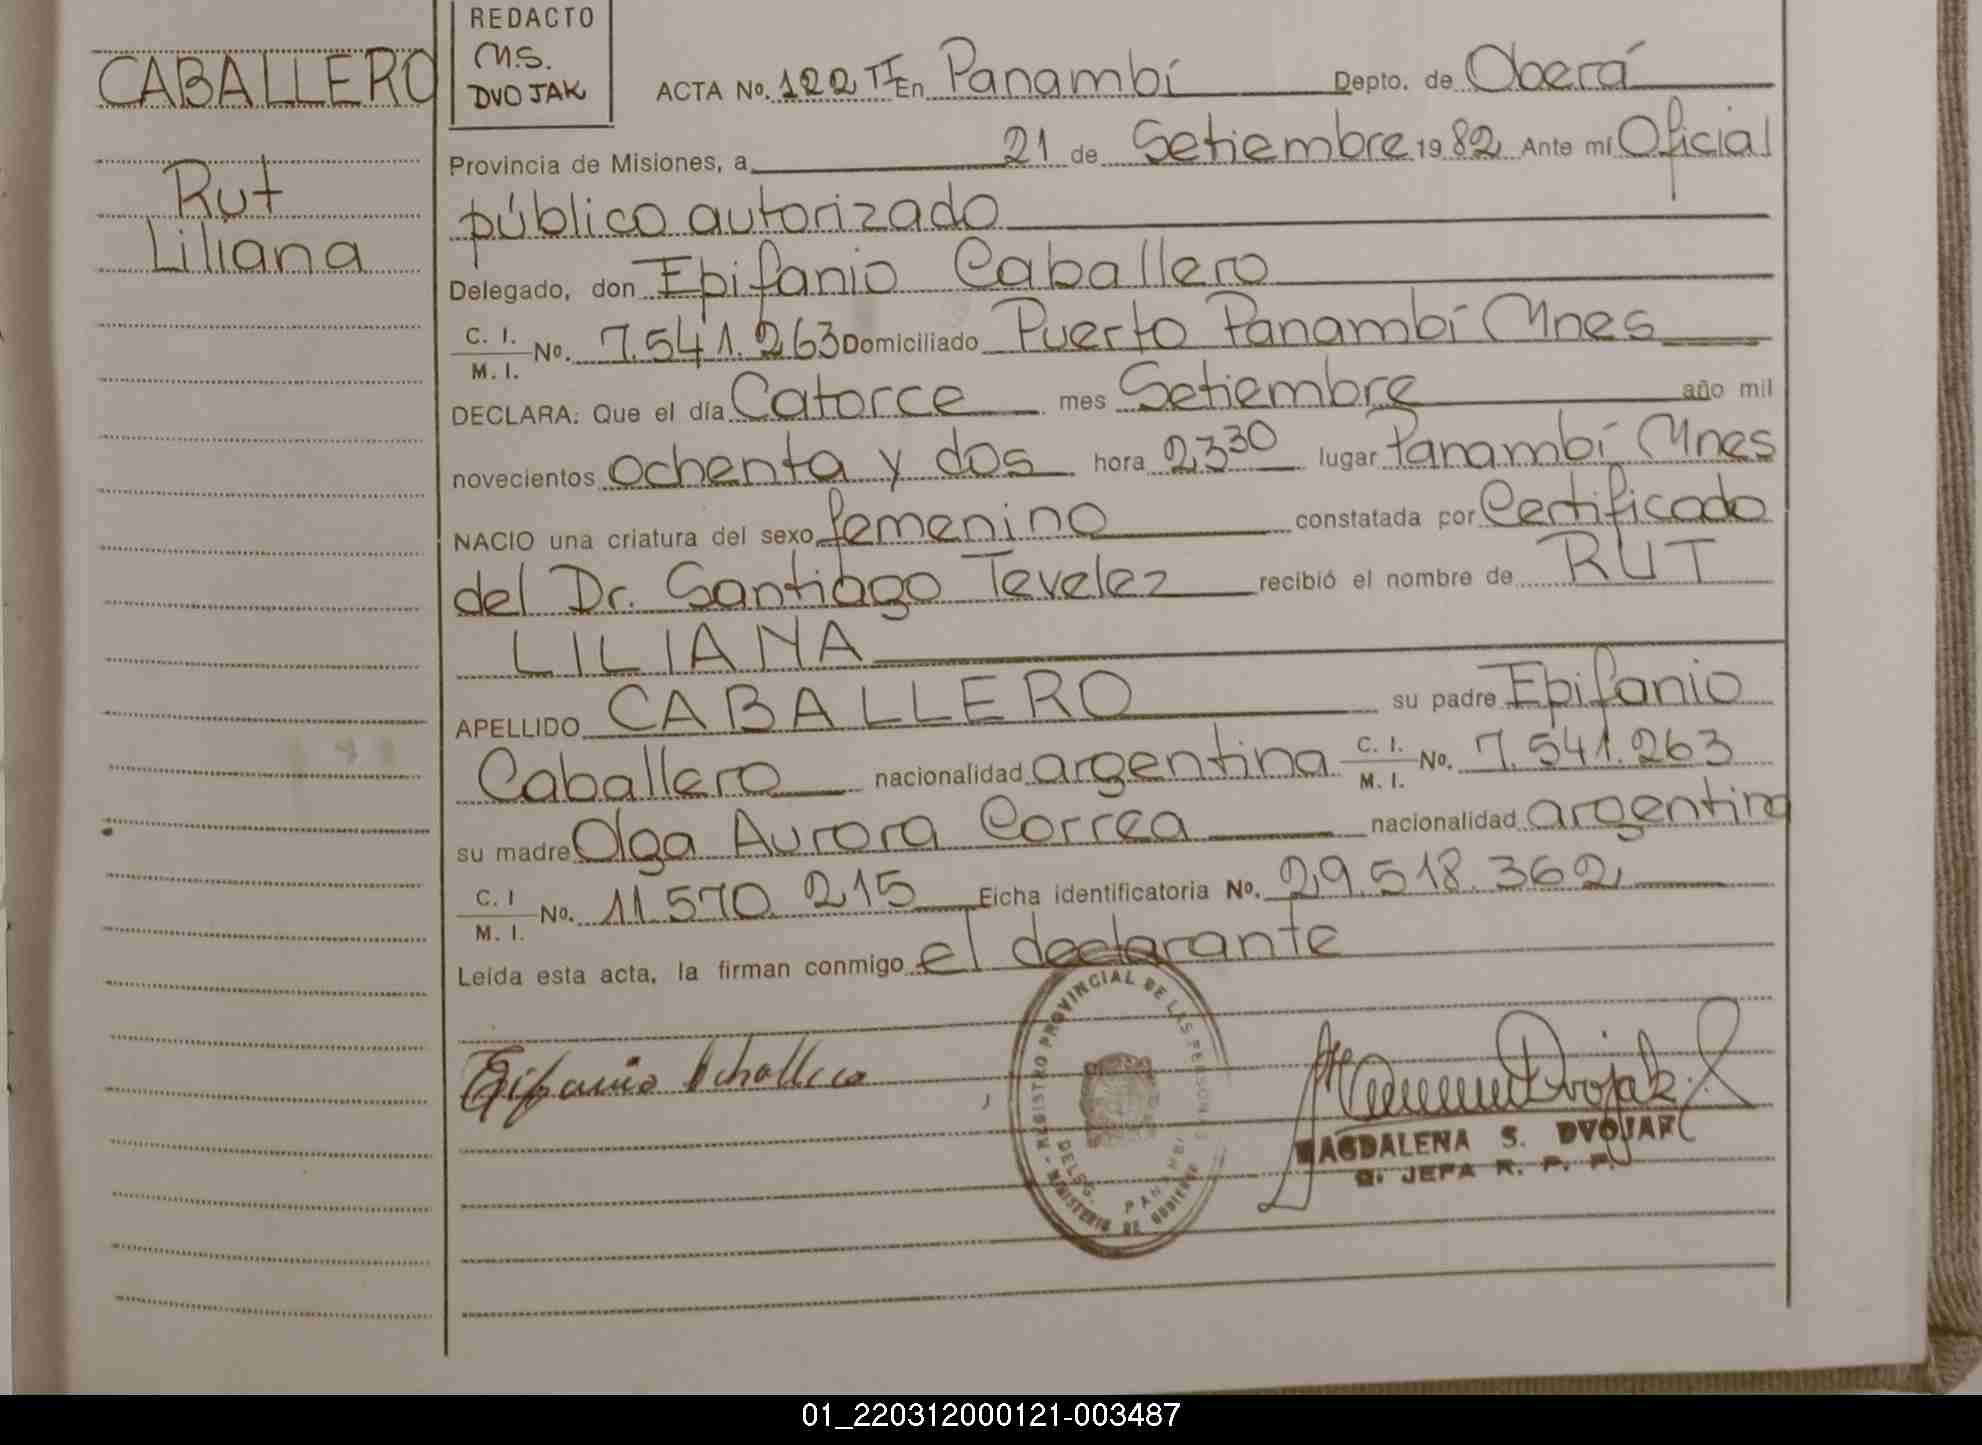 CABALLERO
Rut
Liliana
REDACTO
M.S.
DVOJAK
ACTA No. 122 TI En Panambí Depto. de Oberá
Provincia de Misiones, a 21 de Setiembre 1982 Ante mí Oficial
público autorizado
Delegado, don Epifanio Caballero
C. I. M. I. No. 7.541.263 Domiciliado Puerto Panambí Mnes
DECLARA: Que el día Catorce mes Setiembre año mil
novecientos ochenta y dos hora 23 30 lugar Panambí Mnes
NACIO una criatura del sexo femenino constatada por Certificado
del Dr. Santiago Tevelez recibió el nombre de RUT
LILIANA
APELLIDO CABALLERO su padre Epifanio
Caballero nacionalidad argentina C. I. M. I. No. 7.541.263
su madre Olga Aurora Correa nacionalidad argentina
C. I M. I. No. 11.570 215 Ficha identificatoria No. 29.518.362
Leída esta acta, la firman conmigo el declarante
REGISTRO PROVINCIAL DE LAS PERSONAS
DELEG. PANAMBI
MINISTERIO DE GOBIERNO
Epifanio
Dvojak
MAGDALENA S. DVOJAK
JEFA R. P. P.
01_220312000121-003487